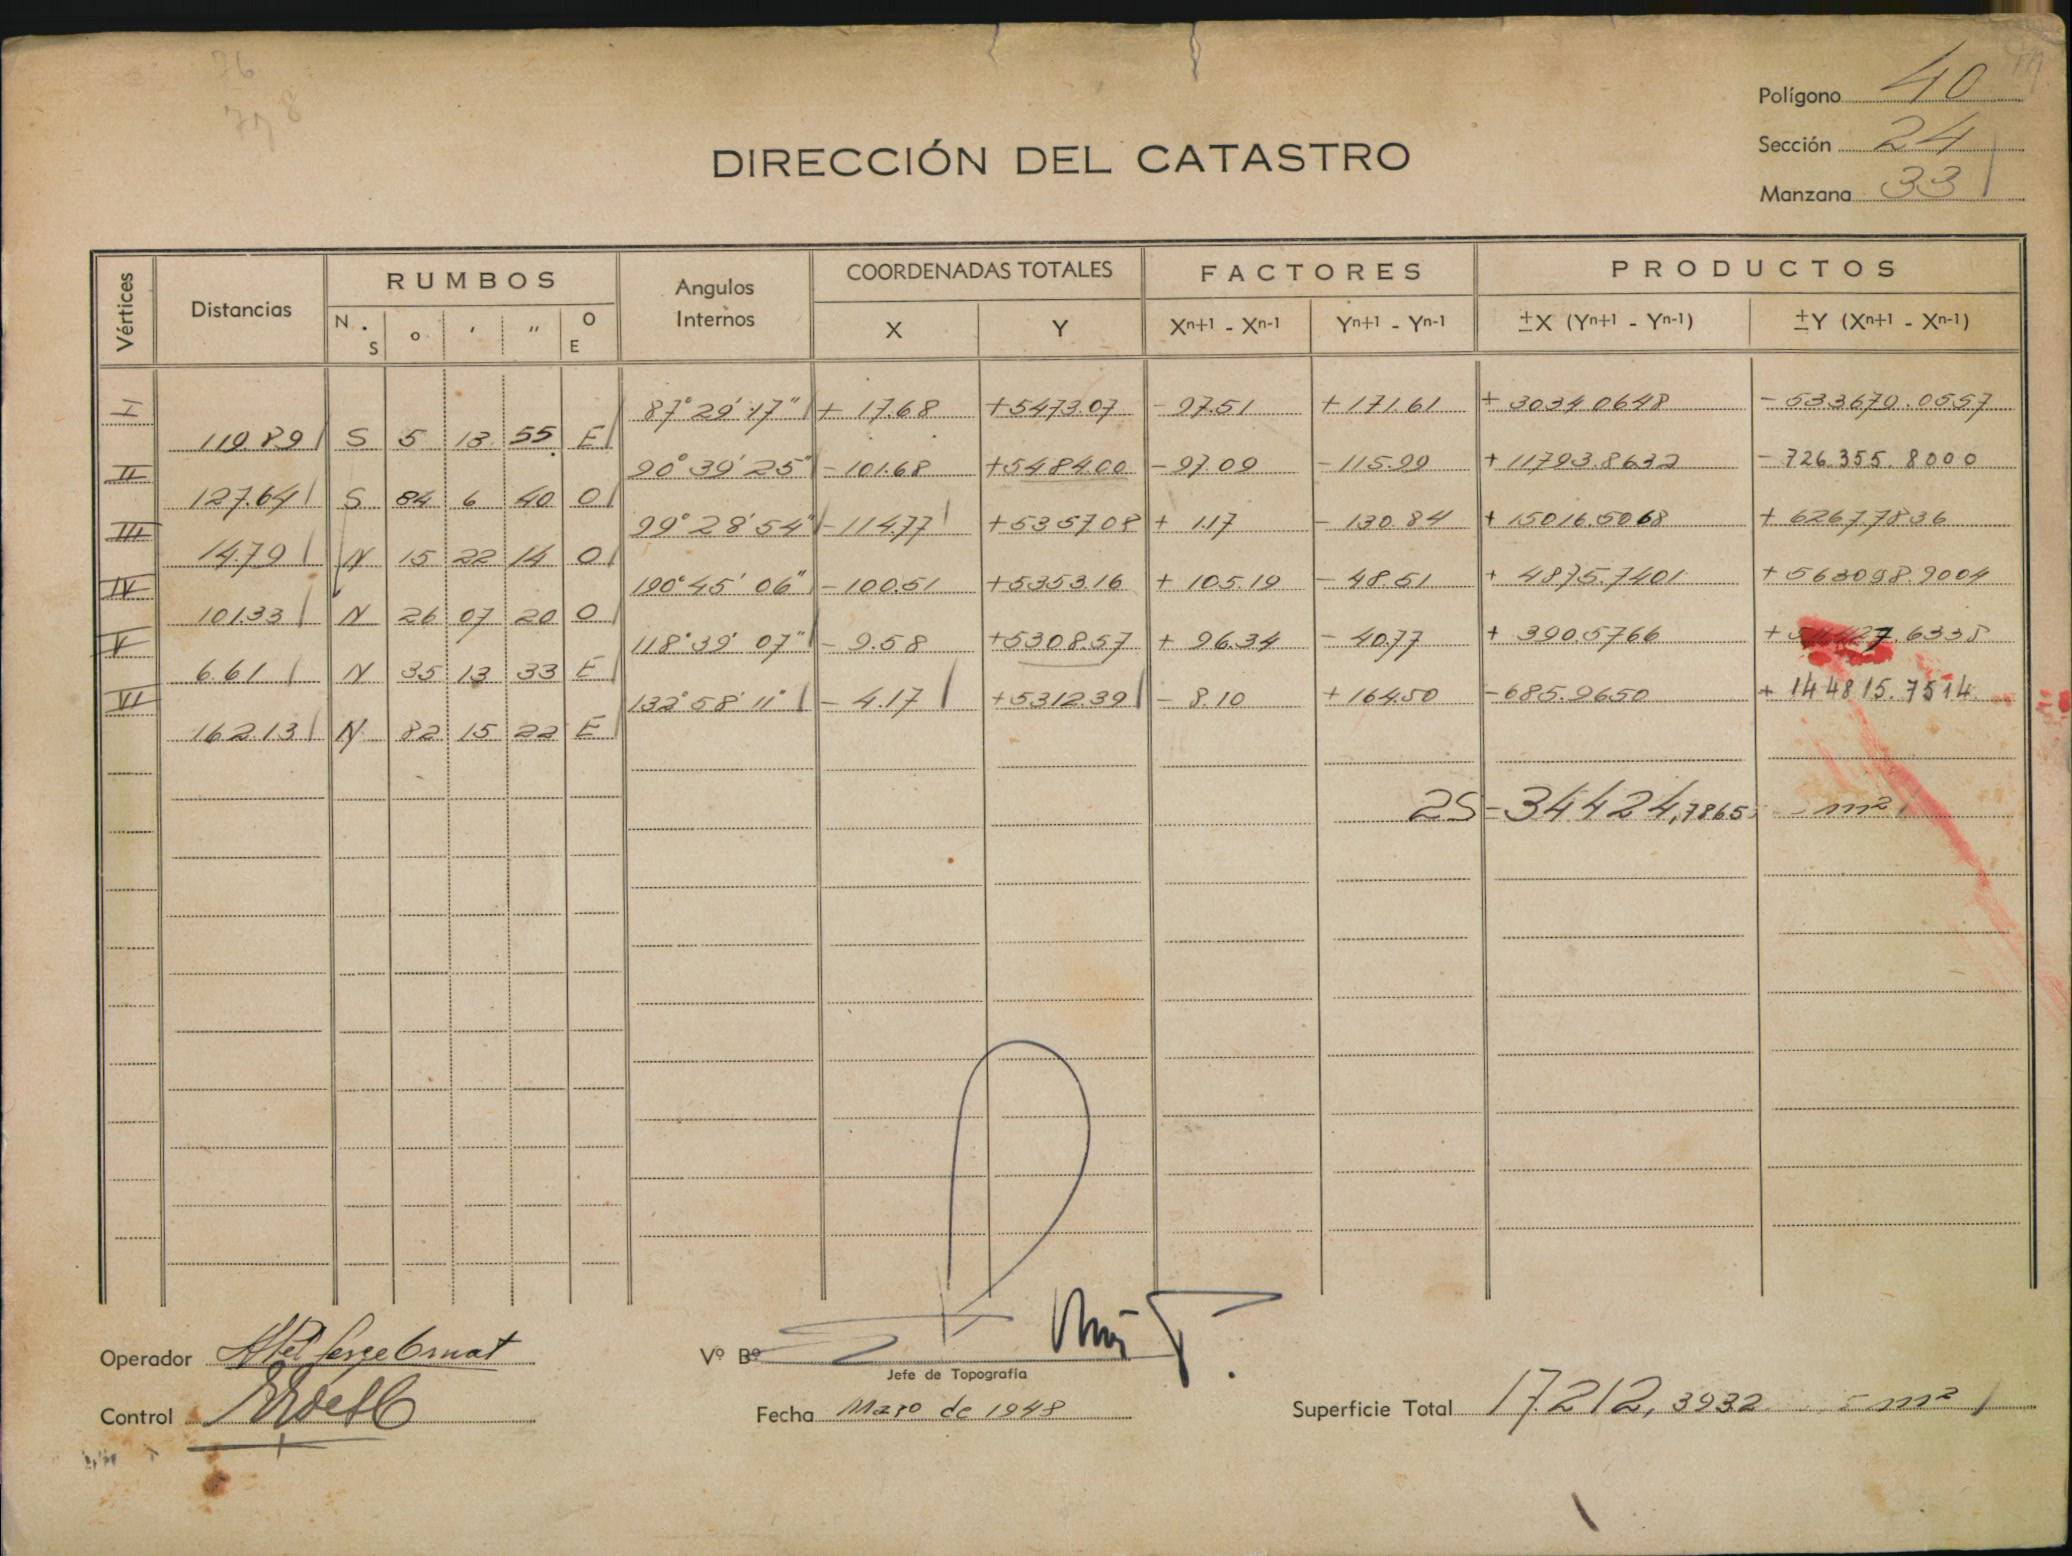 Polígono 40
Sección 24
Manzana 33
DIRECCIÓN DEL CATASTRO
Vértices Distancias RUMBOS Angulos Internos COORDENADAS TOTALES FACTORES PRODUCTOS
N. S o ′ ″ O E X Y Xn+1 - Xn-1 Yn+1 - Yn-1 ±X (Yn+1 - Yn-1) ±Y (Xn+1 - Xn-1)
I 87°29'17" + 17.68 +5473.07 - 97.51 + 171.61 + 3034.0648 - 533679.0557
119.89 S 5 13 55 E
II 90°39'25" -101.68 +5484.00 - 97.09 - 115.99 + 11793.8632 - 726.355.8000
127.64 S 84 6 40 O
III 99°28'54" -114.77 +5357.08 + 1.17 - 130.84 + 15016.5068 + 6267.7836
14.79 N 15 22 14 O
IV 190°45'06" -100.51 +5353.16 + 105.19 - 48.51 + 4875.7401 + 563098.9004
101.33 N 26 07 20 O
V 118°39'07" - 9.58 +5308.57 + 96.34 - 40.77 + 390.5766
6.61 N 35 13 33 E
VI 132°58'11" - 4.17 +5312.39 - 8.10 + 164.50 - 685.9650 + 144815.7514
162.13 N 82 15 22 E
2S = 34424,7865 m²
Operador
Vº Bº
Jefe de Topografía
Control
Fecha Mazo de 1948
Superficie Total 17212,3932 m²